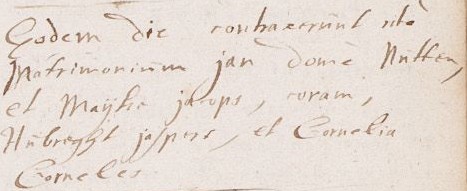 Eodem die contraxerunt
Matrimonium jan dome Nutten,
et Maijke jacops, coram,
Hubreght jaspers, et Cornelia
Corneles